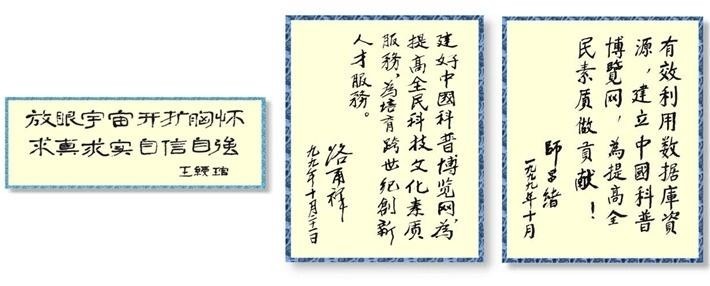 放眼宇宙开扩胸怀
求真求实自信自強
王绶琯
建好中國科普博览网,为
提高全民科技文化素质
服務,為培育跨世纪創新
人才服務。
路甬祥
九九年十月
有效利用数据庫資
源,建立中國科普
博覽网,為提高全
民素质做貢献!
師昌绪
一九九九年十月